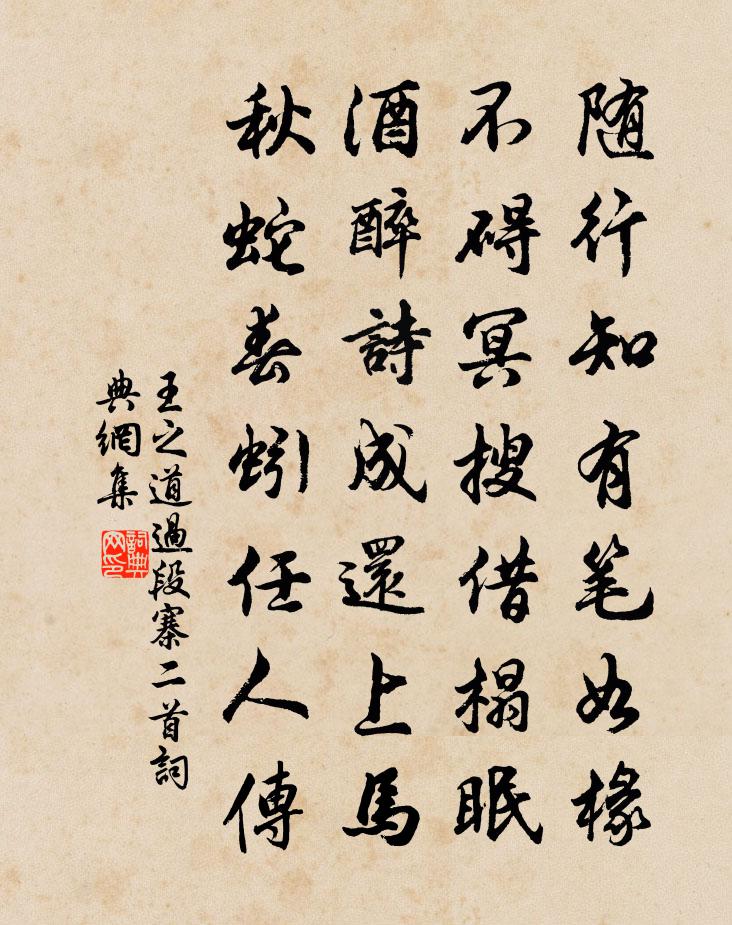 随行知有笔如椽
不碍冥搜借榻眠
酒醉詩成還上馬
秋蛇春蚓任人傳
王之道過段寨二首詞
典網集
詞典
网印